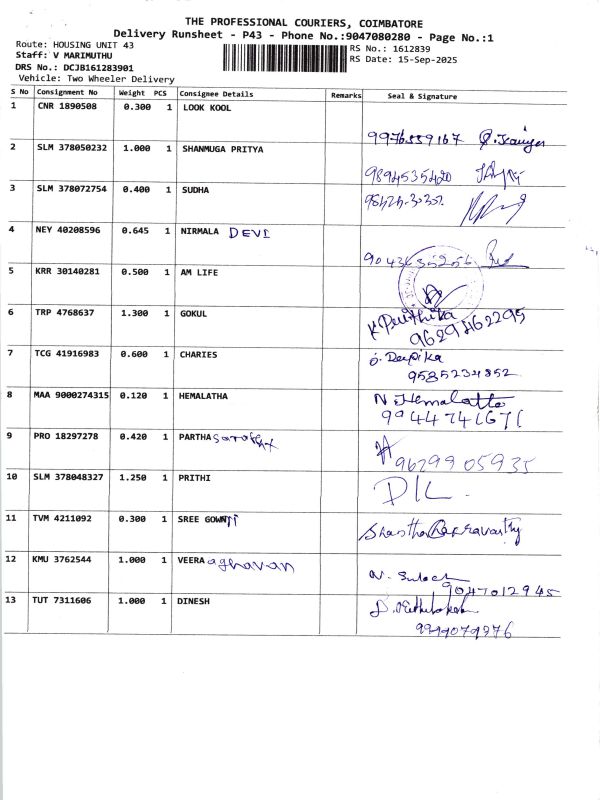 THE PROFESSIONAL COURIERS, COIMBATORE
Delivery Runsheet - P43 - Phone No.:9047080280 - Page No.:1
Route: HOUSING UNIT 43
RS No.: 1612839
Staff: V MARIMUTHU
RS Date: 15-Sep-2025
DRS No.: DCJB161283901
Vehicle: Two Wheeler Delivery
S No Consignment No Weight PCS Consignee Details Remarks Seal & Signature
1 CNR 1890508 0.300 1 LOOK KOOL
9976559167
2 SLM 378050232 1.000 1 SHANMUGA PRITYA
9894535420
3 SLM 378072754 0.400 1 SUDHA
4 NEY 40208596 0.645 1 NIRMALA DEVI
5 KRR 30140281 0.500 1 AM LIFE
6 TRP 4768637 1.300 1 GOKUL
K Perithika
9629462295
7 TCG 41916983 0.600 1 CHARIES
Deepika
9585234852
8 MAA 9000274315 0.120 1 HEMALATHA
N Hemalatha
9944741671
9 PRO 18297278 0.420 1 PARTHA
9629905935
10 SLM 378048327 1.250 1 PRITHI
11 TVM 4211092 0.300 1 SREE GOWRI
12 KMU 3762544 1.000 1 VEERA aghavan
9047012945
13 TUT 7311606 1.000 1 DINESH